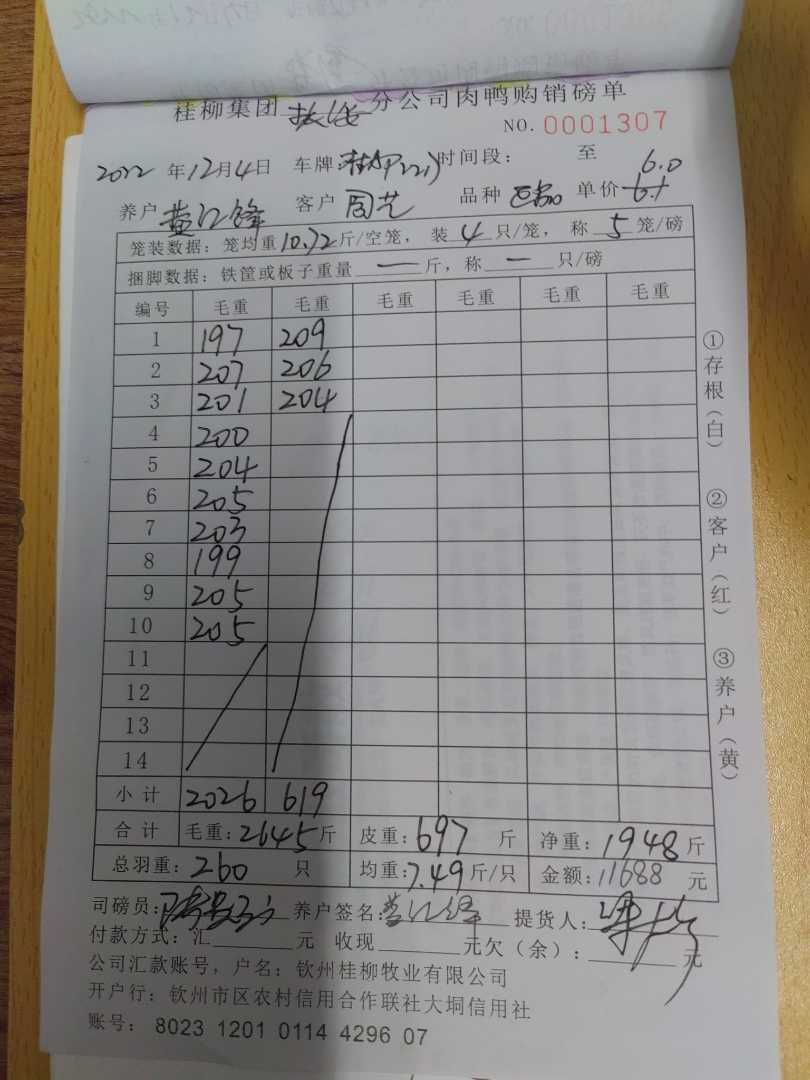 桂柳集团 分公司肉鸭购销磅单
NO. 0001307
2022年12月4日 车牌: 时间段: 至
养户 黄江锋 客户 周艺 品种 单价 6.0
笼装数据: 笼均重10.72斤/空笼, 装4只/笼, 称5笼/磅
捆脚数据: 铁筐或板子重量一斤, 称一只/磅
编号 毛重 毛重 毛重 毛重 毛重 毛重
1 197 209
2 207 206
3 201 204
4 200
5 204
6 205
7 203
8 199
9 205
10 205
11
12
13
14
小计 2026 619
合计 毛重:2645斤 皮重:697斤 净重:1948斤
总羽重:260只 均重:7.49斤/只 金额:11688元
司磅员: 养户签名:黄江锋 提货人:
付款方式: 汇 元 收现 元欠(余): 元
公司汇款账号, 户名: 钦州桂柳牧业有限公司
开户行: 钦州市区农村信用合作联社大垌信用社
账号: 8023 1201 0114 4296 07
①存根(白)
②客户(红)
③养户(黄)